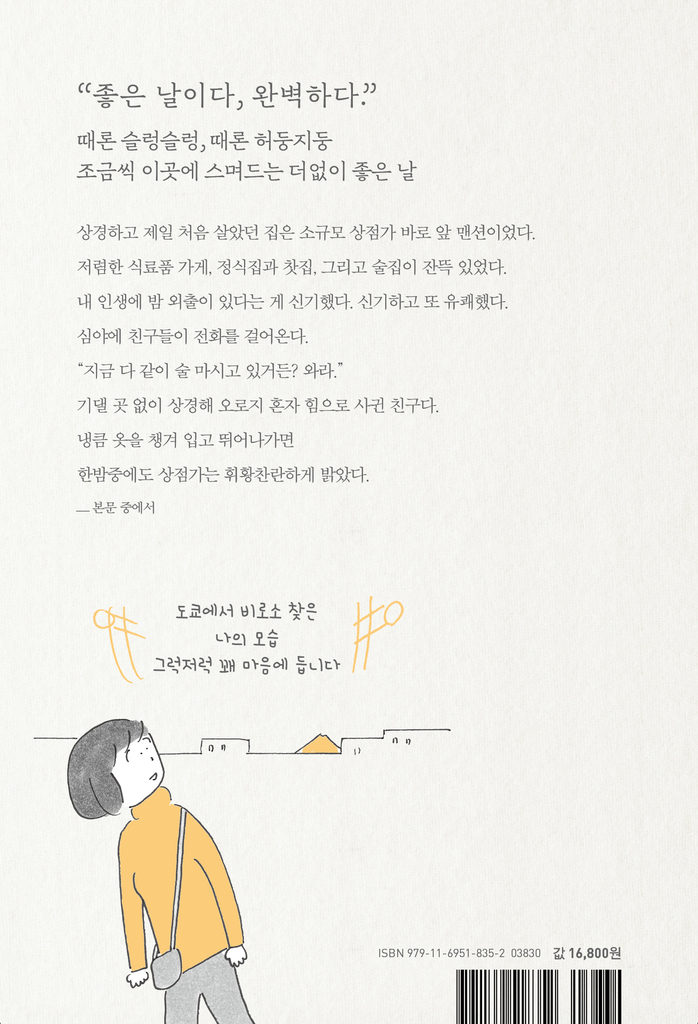 “좋은 날이다, 완벽하다.”
때론 슬렁슬렁, 때론 허둥지둥
조금씩 이곳에 스며드는 더없이 좋은 날
상경하고 제일 처음 살았던 집은 소규모 상점가 바로 앞 맨션이었다.
저렴한 식료품 가게, 정식집과 찻집, 그리고 술집이 잔뜩 있었다.
내 인생에 밤 외출이 있다는 게 신기했다. 신기하고 또 유쾌했다.
심야에 친구들이 전화를 걸어온다.
“지금 다 같이 술 마시고 있거든? 와라.”
기댈 곳 없이 상경해 오로지 혼자 힘으로 사귄 친구다.
냉큼 옷을 챙겨 입고 뛰어나가면
한밤중에도 상점가는 휘황찬란하게 밝았다.
— 본문 중에서
도쿄에서 비로소 찾은
나의 모습
그럭저럭 꽤 마음에 듭니다
ISBN 979-11-6951-835-2 03830 값 16,800원